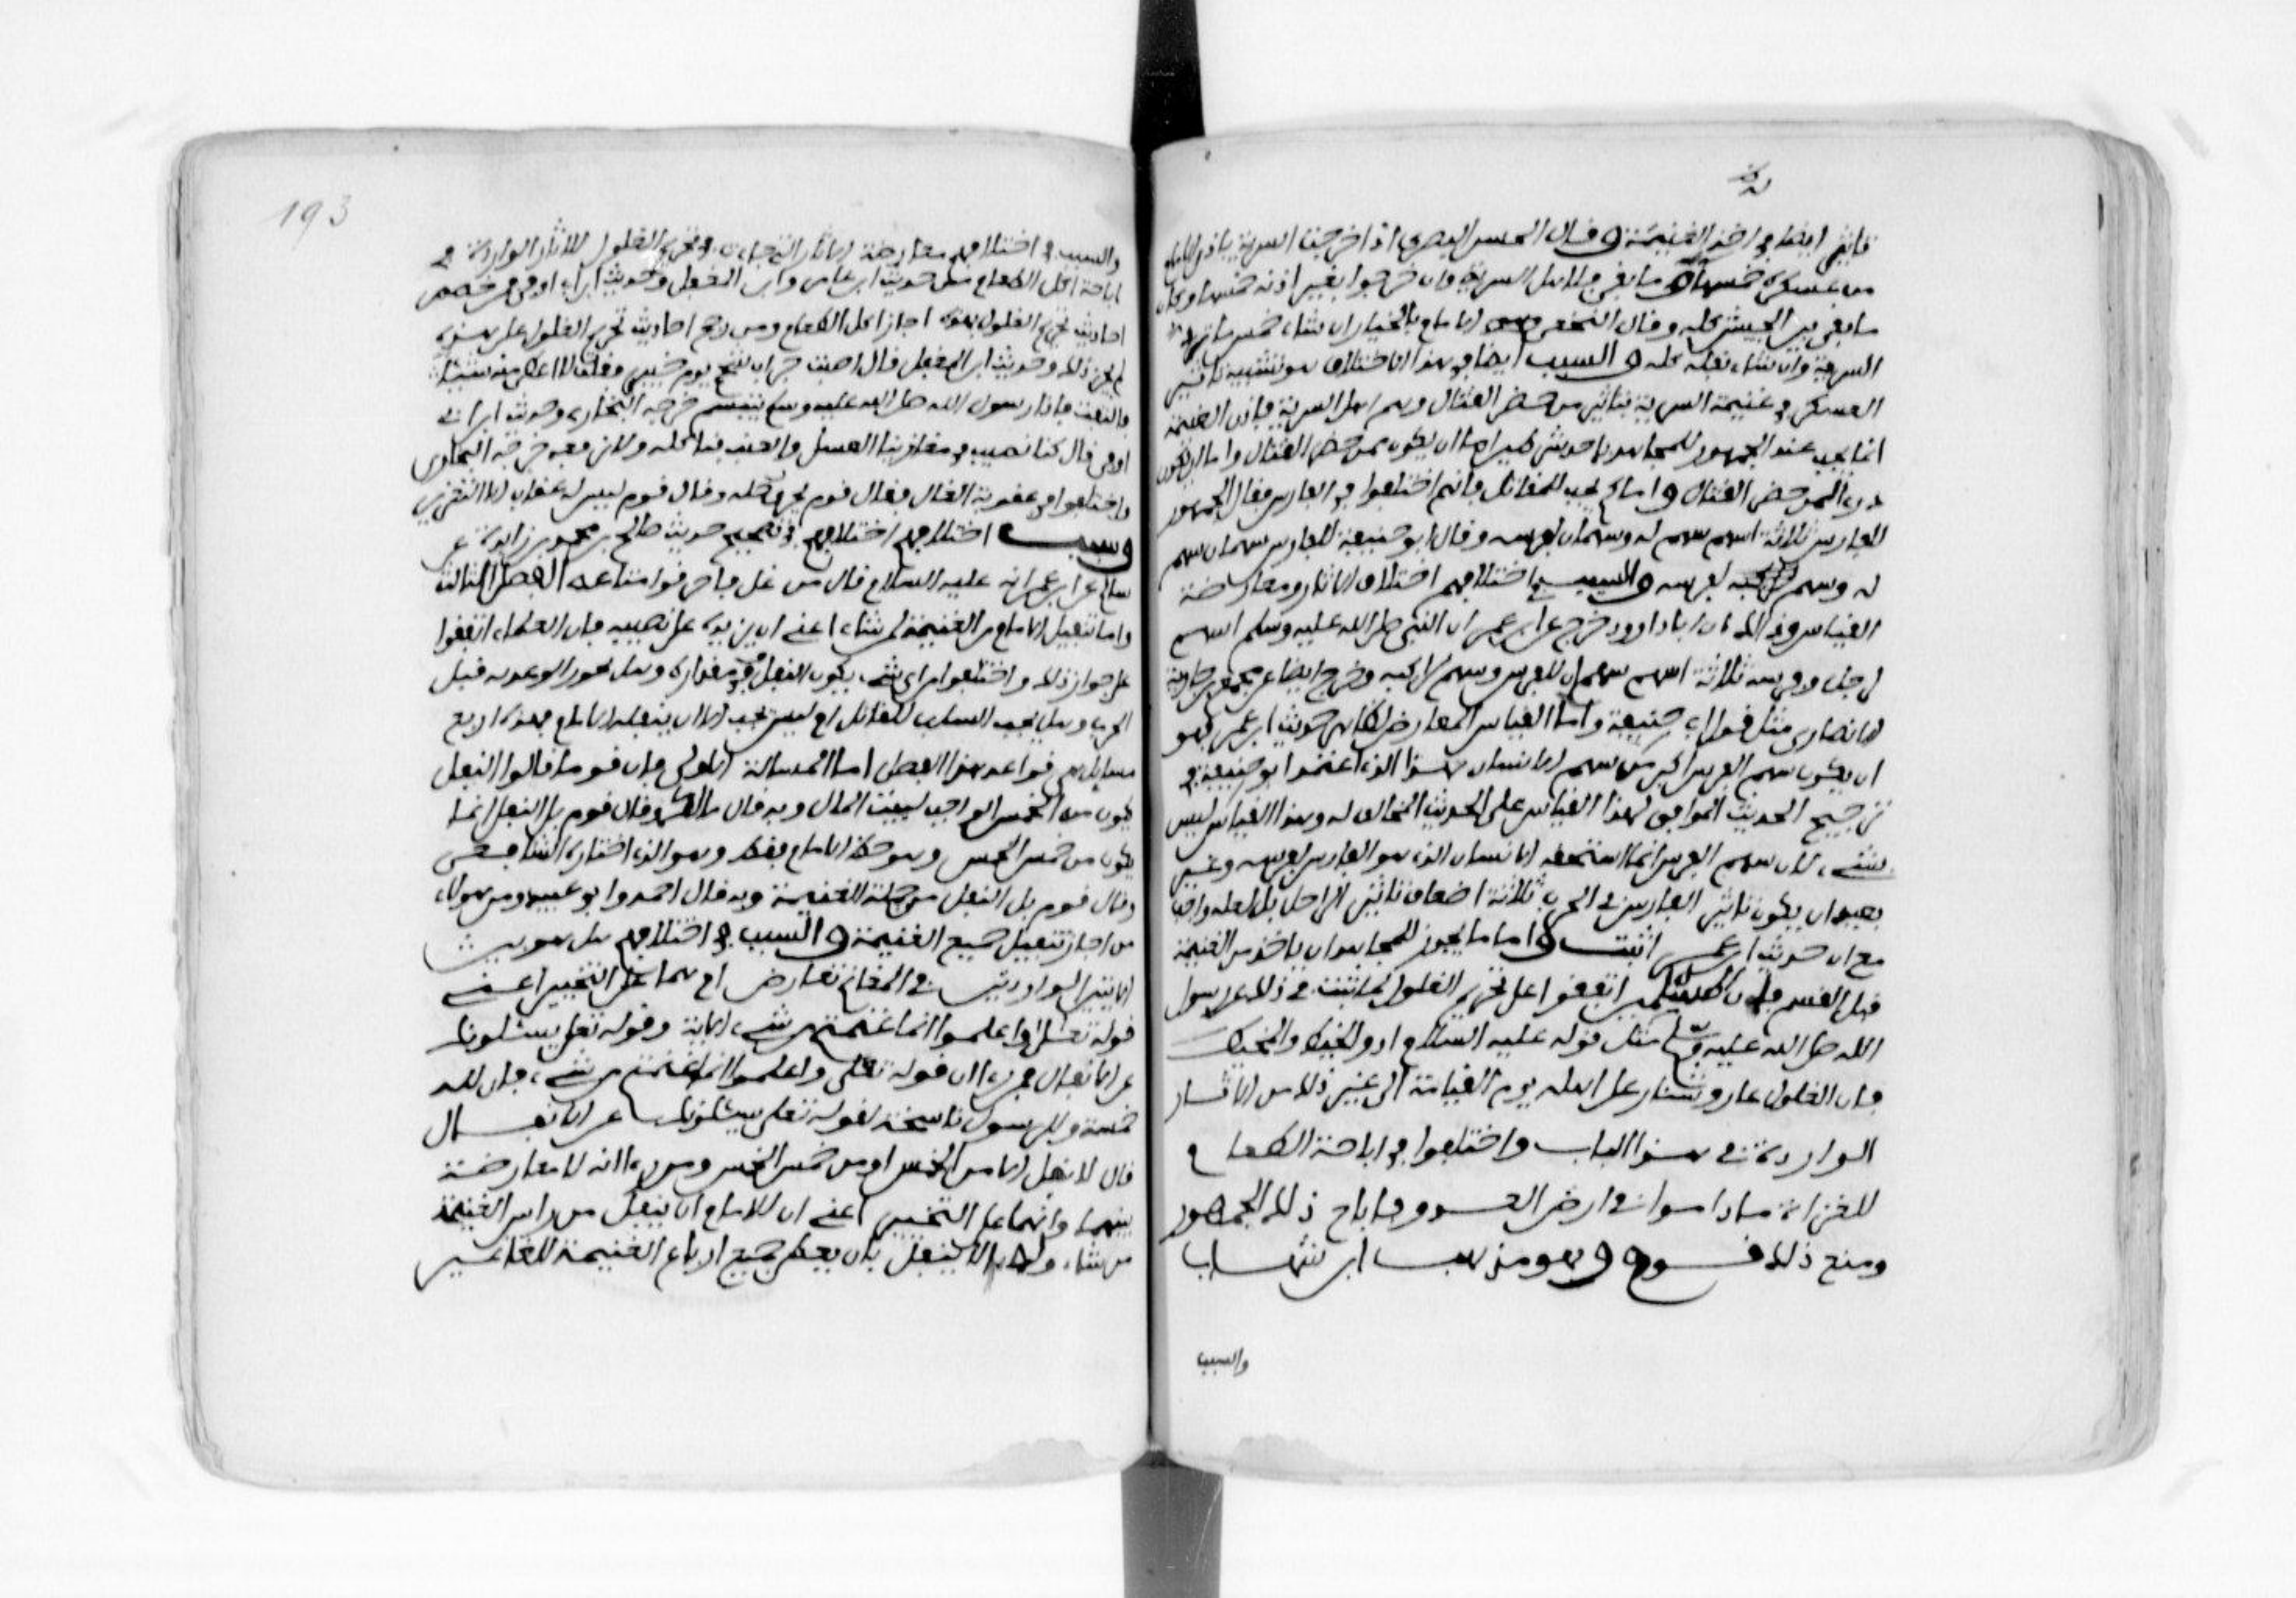 تاثير ايضا في اخذ الغنيمة وقال الحسن البصري اذا خرجت السرية باذن الامام
من عسكره خمسها وما بقي فلاهل السرية وان خرجوا بغير اذنه خمسها وكان
ما بقي بين الجيش كله وقال النخعي الامام بالخيار ان شاء خمس ما ترد
السرية وان شاء نفله كله والسبب ايضا في هذا الاختلاف هو تشبيه تاثير
العسكر في غنيمة السرية بتاثير من حضر القتال وهم اهل السرية فاذن الغنيمة
انما تجب عند الجمهور للمجاهد باحد شرطين اما ان يكون ممن حضر القتال واما ان يكون
ردءا لمن حضر القتال واما كم يجب للمقاتل فانهم اختلفوا في الفارس فقال الجمهور
للفارس ثلاثة اسهم سهم له وسهمان لفرسه وقال ابو حنيفة للفارس سهمان سهم
له وسهم لفرسه والسبب في اختلافهم اختلاف الاثار ومعارضة
القياس وذلك ان ابا داوود خرج عن ابن عمر ان النبي صلى الله عليه وسلم اسهم
لرجل وفرسه ثلاثة اسهم سهمان للفرس وسهم لراكبه وخرج ايضا عن مجمع بن جارية
الانصاري مثل قول ابي حنيفة واما القياس المعارض لظاهر حديث ابن عمر فهو
ان يكون سهم الفرس اكبر من سهم الانسان هذا الذي اعتمد ابو حنيفة في
ترجيح الحديث الموافق لهذا القياس على الحديث المخالف له وهذا القياس ليس
بشيء لان سهم الفرس انما استحقه الانسان الذي هو الفارس بفرسه وغير
بعيد ان يكون تاثير الفارس في الحرب ثلاثة اضعاف تاثير الراجل بل لعله واجب
مع ان حديث ابن عمر اثبت واما ما يجوز للمجاهد ان ياخذ من الغنيمة
قبل القسم فان المسلمين اتفقوا على تحريم الغلول لما ثبت في ذلك عن رسول
الله صلى الله عليه وسلم مثل قوله عليه السلام ادوا الخيط والمخيط
فان الغلول عار وشنار على اهله يوم القيامة الى غير ذلك من الاثار
الواردة في هذا الباب واختلفوا في اباحة الطعام
للغزاة ما داموا في ارض العدو فاباح ذلك الجمهور
ومنع ذلك قوم وهو مذهب ابن شهاب
والسبب
193
والسبب في اختلافهم معارضة الاثار التي جاءت في تحريم الغلول للاثار الواردة في
اباحة اكل الطعام من حديث ابن عمر وابن المغفل وحديث ابن ابي اوفى فمن خصص
احاديث تحريم الغلول بهذه اجاز اكل الطعام ومن رجح احاديث تحريم الغلول على هذه
لم يجز ذلك وحديث ابن المغفل قال اصبت جراب شحم يوم خيبر فقلت لا اعطي منه شيئا
فالتفت فاذا رسول الله صلى الله عليه وسلم يتبسم خرجه البخاري وحديث ابن ابي
اوفى قال كنا نصيب في مغازينا العسل والعنب فناكله ولا نرفعه خرجه البخاري
واختلفوا في عقوبة الغال فقال قوم يحرق رحله وقال قوم ليس له عقاب الا التعزير
وسبب اختلافهم اختلافهم في تصحيح حديث صالح بن محمد بن زايدة عن
سالم عن ابن عمر انه عليه السلام قال من غل فاحرقوا متاعه الفصل الثالث
واما تنفيل الامام من الغنيمة لمن شاء اعني ان يزيده على نصيبه فان العلماء اتفقوا
على جواز ذلك واختلفوا من اي شيء يكون النفل وفي مقداره وهل يجوز الوعد به قبل
الحرب وهل يجب السلب للقاتل ام ليس يجب الا ان ينفله الامام فهذه اربع
مسايل هي قواعد هذا الفصل اما المسالة الاولى فان قوما قالوا النفل
يكون من الخمس الواجب لبيت المال وبه قال مالك وقال قوم بل النفل انما
يكون من خمس الخمس وهو حظ الامام فقط وهو الذي اختاره الشافعي
وقال قوم بل النفل من جملة الغنيمة وبه قال احمد وابو عبيد ومن هولاء
من اجاز تنفيل جميع الغنيمة والسبب في اختلافهم هل هو بين
الايتين الواردتين في المغانم تعارض ام هما على التخيير اعني
قوله تعلى واعلموا انما غنمتم من شيء الاية وقوله تعلى يسئلونك
عن الانفال فمن راى ان قوله تعلى واعلموا انما غنمتم من شيء فان لله
خمسه وللرسول ناسخة لقوله تعلى يسئلونك عن الانفال
قال لا نفل الا من الخمس او من خمس الخمس ومن راى انه لا معارضة
بينهما وانهما على التخيير اعني ان للامام ان ينفل من راس الغنيمة
من شاء وله الا ينفل بان يعطي جميع ارباع الغنيمة للغانمين